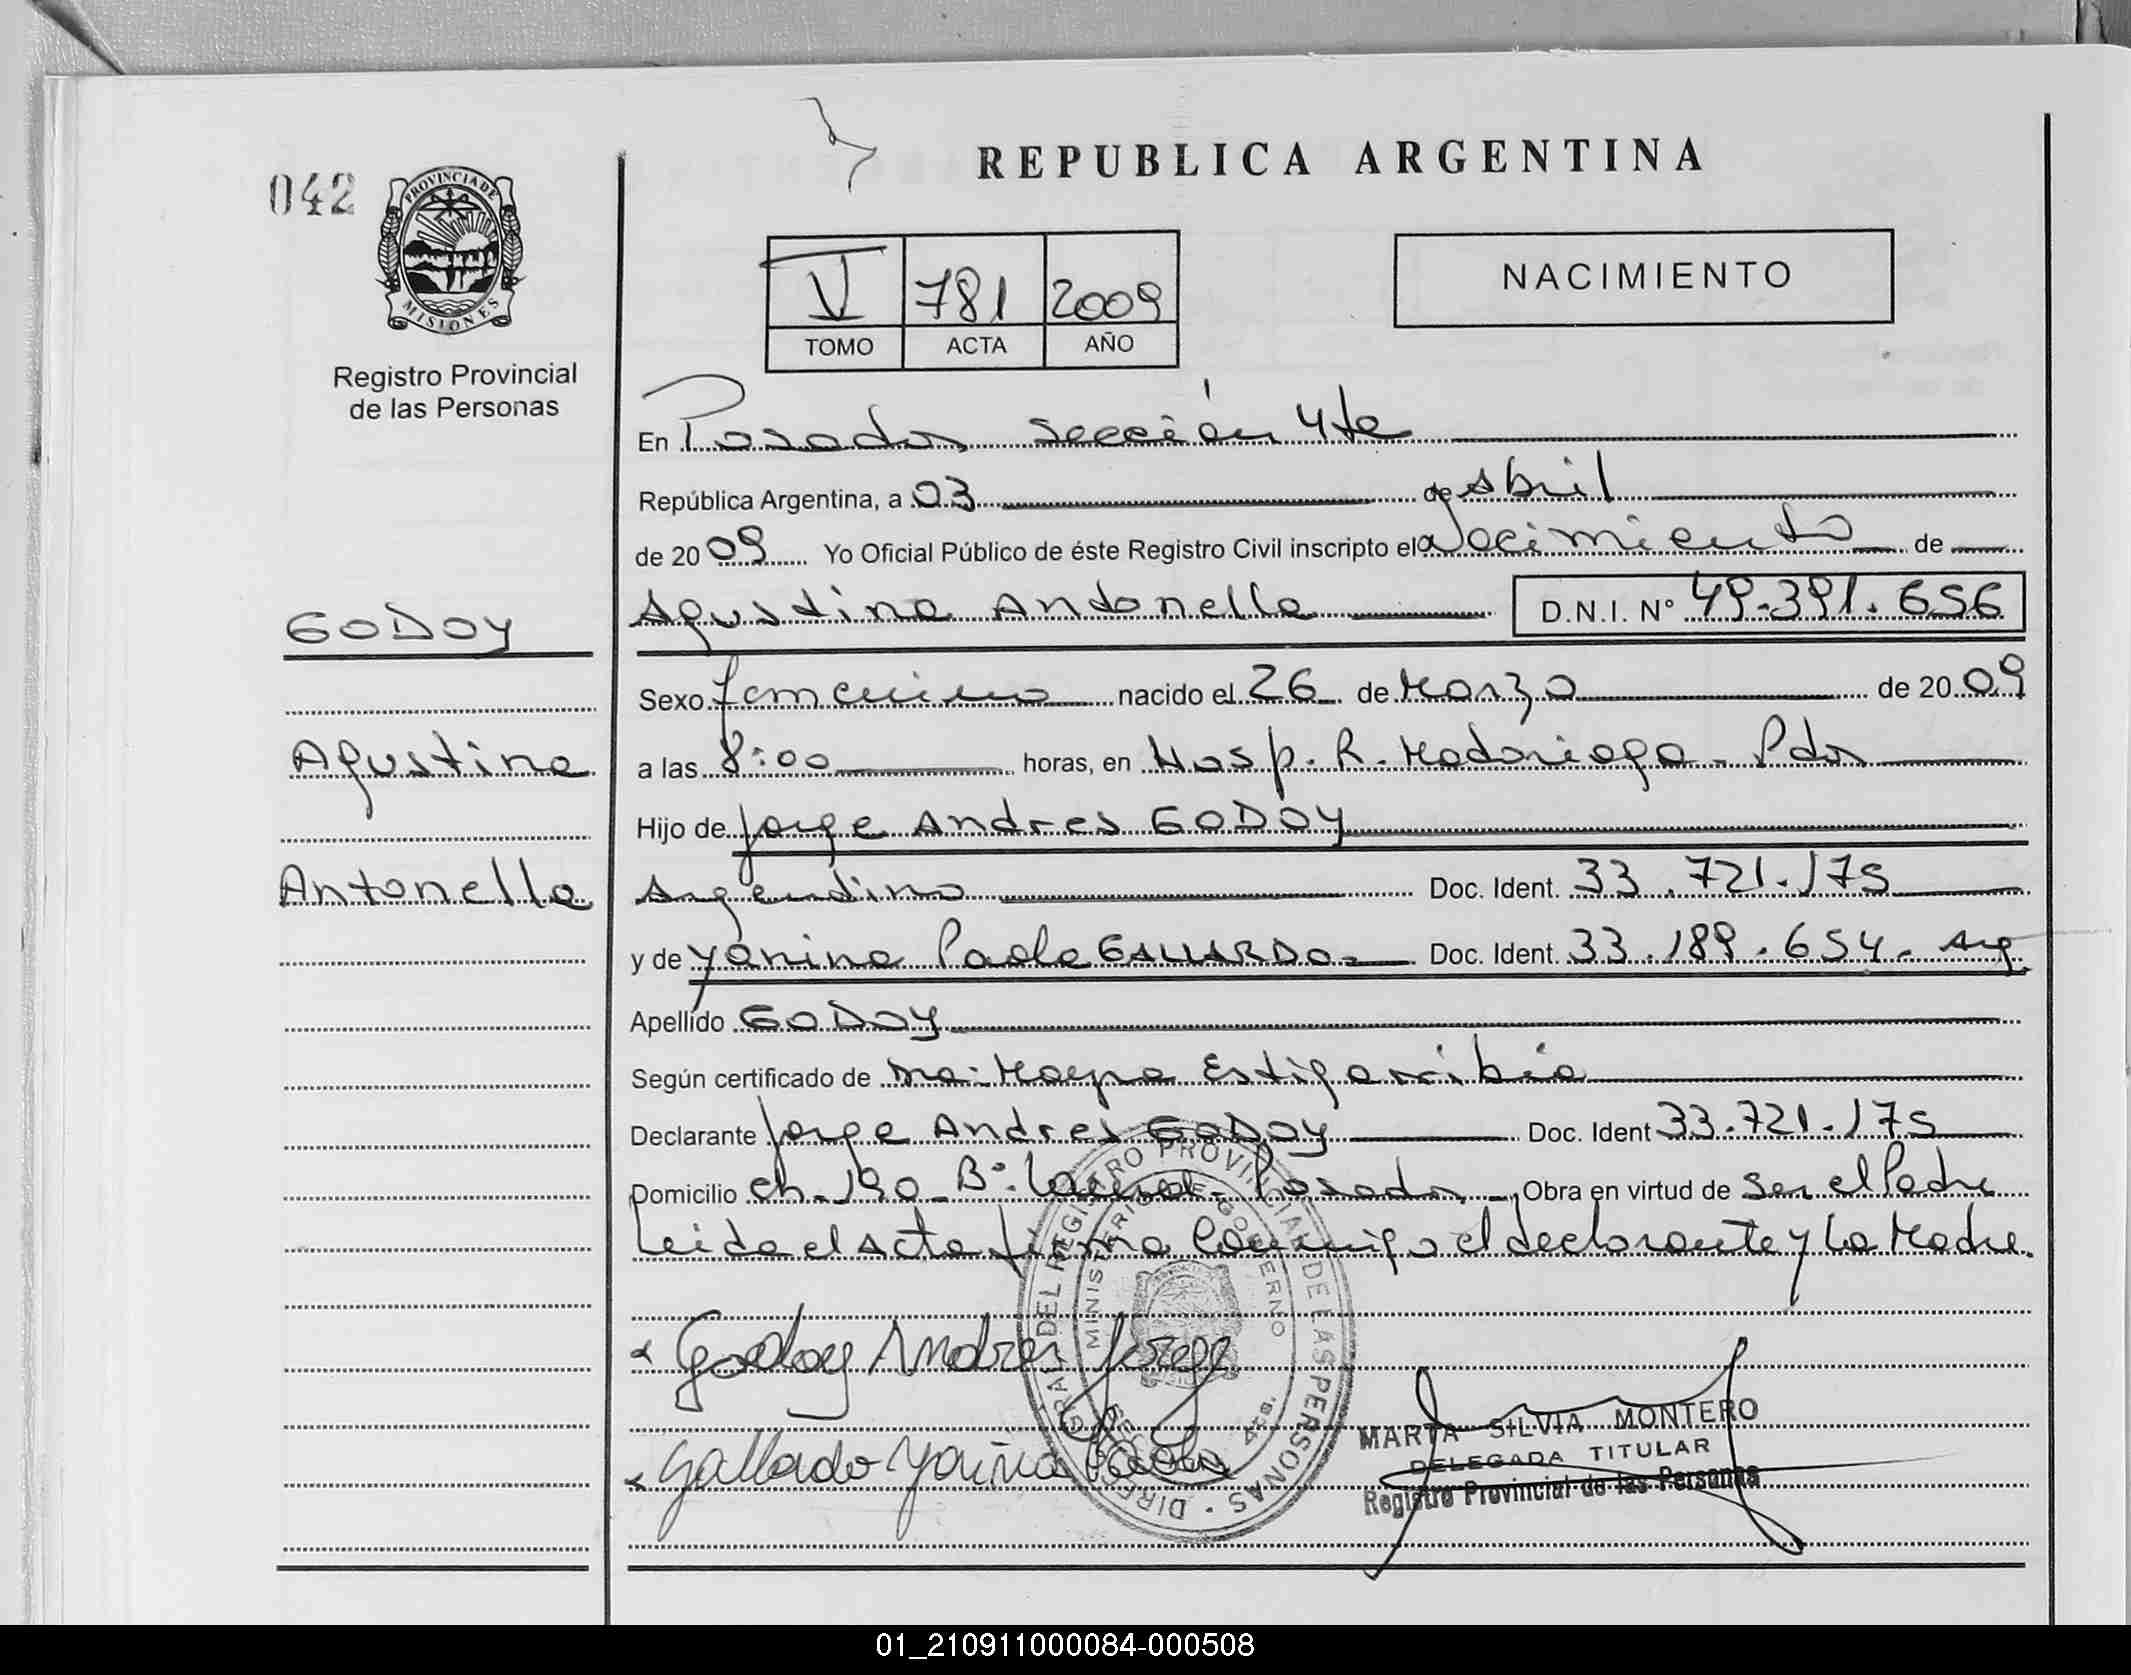 042
PROVINCIA DE
MISIONES
Registro Provincial
de las Personas
REPUBLICA ARGENTINA
V 781 2009
TOMO ACTA AÑO
NACIMIENTO
En Posadas, sección 4ta
República Argentina, a 03 de Abril
de 2009 Yo Oficial Público de éste Registro Civil inscripto el Nacimiento de
Agustina Antonella D.N.I. Nº 49.391.656
GODOY
Sexo femenino nacido el 26 de Marzo de 2009
Agustina
a las 8:00 horas, en Hosp. R. Madariaga - Pdas
Hijo de Jorge Andres GODOY
Antonella
Argentino Doc. Ident. 33.721.175
y de Yanina Paola GALLARDO- Doc. Ident. 33.189.654. Arg
Apellido GODOY
Según certificado de Ma. Mayra Estigarribia
Declarante Jorge Andres GODOY Doc. Ident 33.721.175
Domicilio ch. 190 - Bº: - Posadas - Obra en virtud de ser el Padre
Leida el Acta firma Conmigo el declarante y La Madre.
Godoy Andres Jorge
Gallardo Yanina Paola
DIRECCION GRAL DEL REGISTRO PROVINCIAL DE LAS PERSONAS
MINISTERIO DE GOBIERNO
MARTA SILVIA MONTERO
DELEGADA TITULAR
Registro Provincial de las Personas
01_210911000084-000508